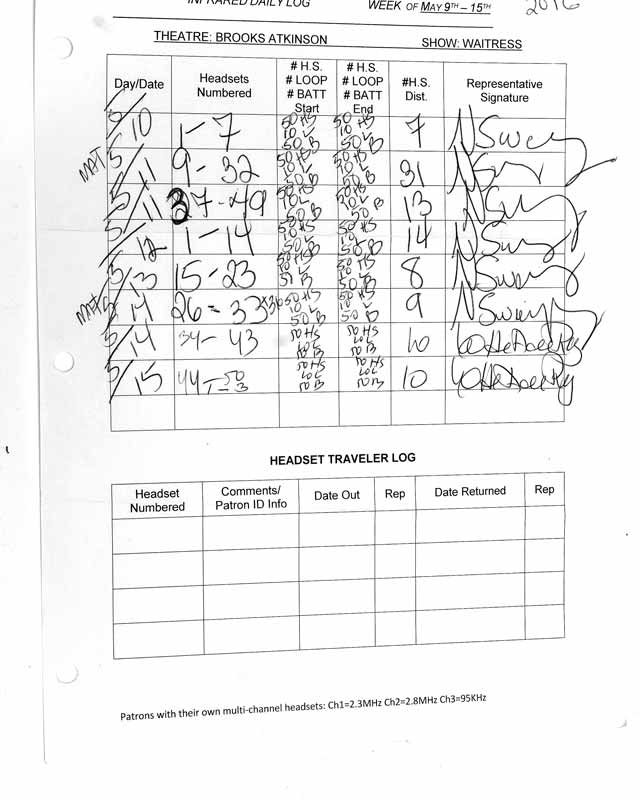 INFRARED DAILY LOG WEEK OF MAY 9TH – 15TH 2016
THEATRE: BROOKS ATKINSON SHOW: WAITRESS
Day/Date Headsets Numbered # H.S. # LOOP # BATT Start # H.S. # LOOP # BATT End #H.S. Dist. Representative Signature
5/10 1-7 50 HS 10 L 50 B 50 HS 10 L 50 B 7 NSweeny
MAT 5/11 9-32 50 HS 10 L 50 B 50 HS 10 L 50 B 31
5/11 37-49 50 HS 10 L 50 B 50 HS 10 L 50 13
5/12 1-14 50 HS 10 L 50 B 50 HS 10 L 50 B 14
5/13 15-23 50 HS 10 L 50 B 50 HS 10 L 50 B 8
MAT 5/14 26-33 +36 50 HS 10 L 50 B 50 HS 10 L 50 B 9
5/14 34-43 50 HS 10 L 50 B 50 HS 10 L 50 B 10
5/15 44-50 1-3 50 HS 10 L 50 B 50 HS 10 L 50 B 10
HEADSET TRAVELER LOG
Headset Numbered Comments/ Patron ID Info Date Out Rep Date Returned Rep
Patrons with their own multi-channel headsets: Ch1=2.3MHz Ch2=2.8MHz Ch3=95KHz